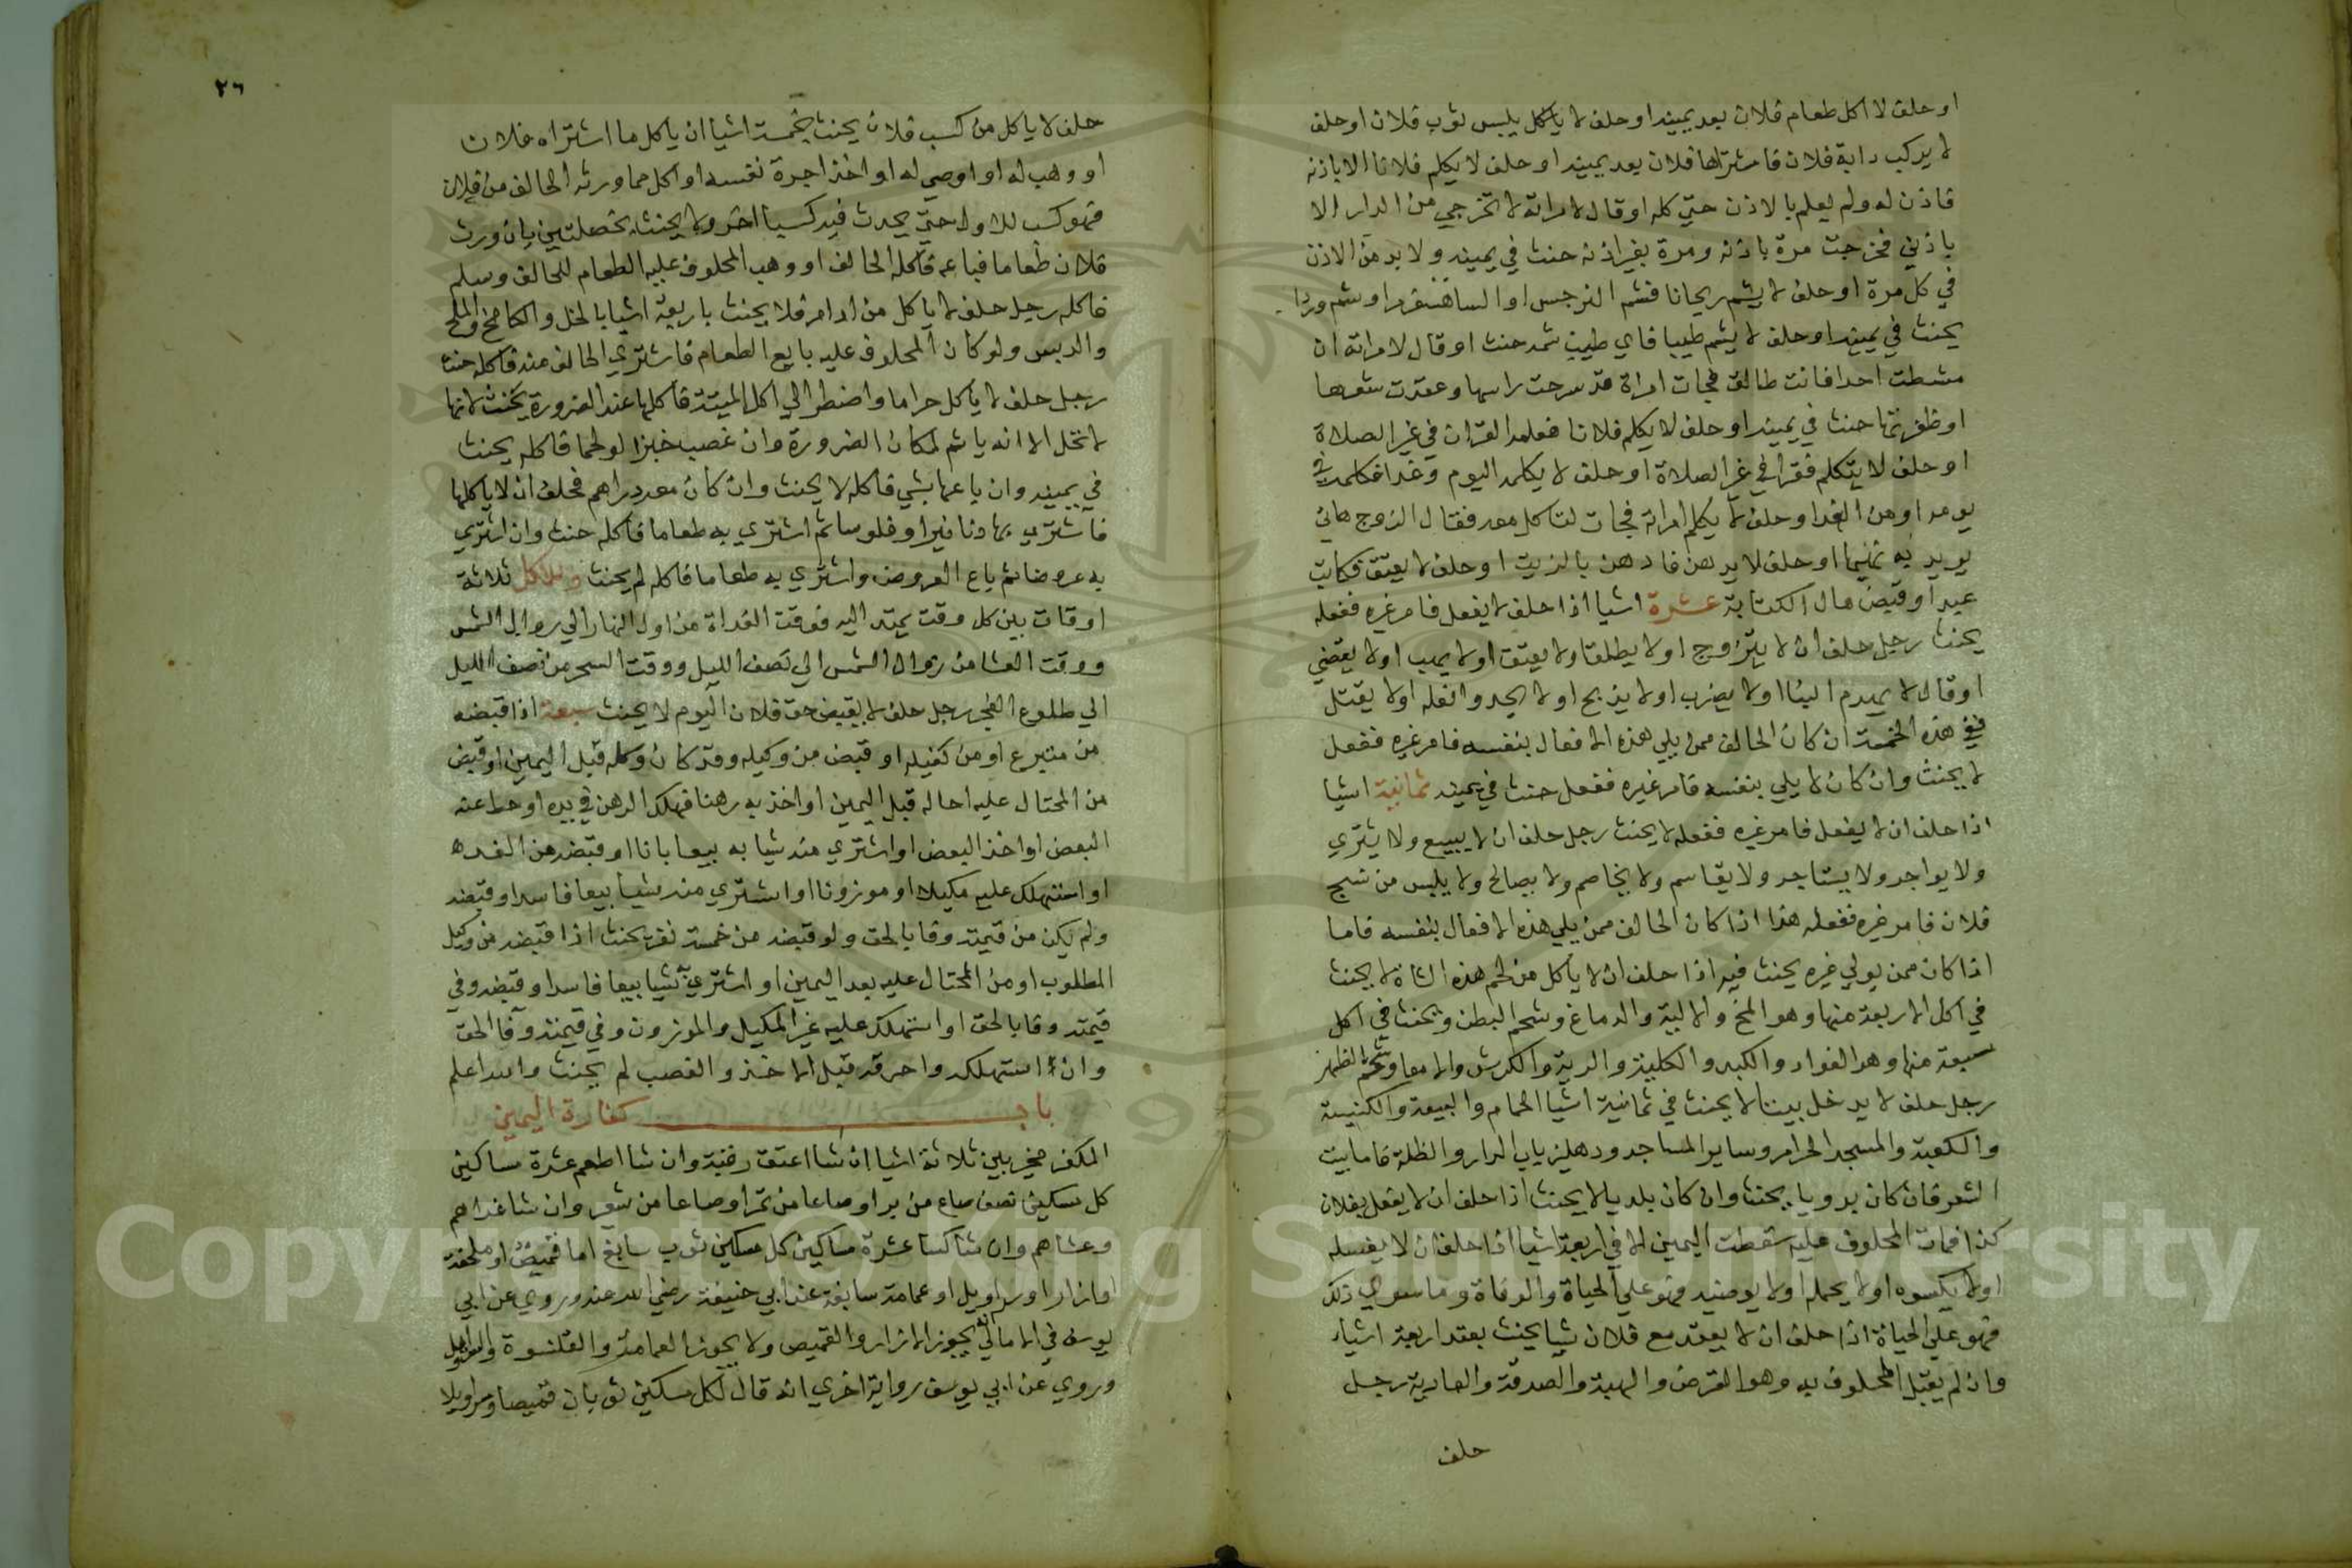 او حلف لا اكل طعام فلان بعد يمينه او حلف لا ياكل يلبس ثوب فلان او حلف
لا يركب دابة فلان فاشتراها فلان بعد يمينه او حلف لا يكلم فلانا الا باذنه
فاذن له ولم يعلم بالاذن حتي كلمه او قال لامراته لا تخرجي من الدار الا
باذني فخرجت مرة باذنه ومرة بغير اذنه حنث في يمينه ولا بد من الاذن
في كل مرة او حلف لا يشم ريحانا فشم النرجس او الساهسفرم او شم وردا
يحنث في يمينه او حلف لا يشم طيبا فاي طيب شمه حنث او قال لامراته ان
مشطت احدا فانت طالق فجات امراة قد سرحت راسها وعقدت شعرها
او ظفرتها حنث في يمينه او حلف لا يكلم فلانا فعلمه القران في غير الصلاة
او حلف لا يتكلم فقرا في غير الصلاة او حلف لا يكلمه اليوم وغدا فكلمه في
يومه او من الغد او حلف لا يكلم امراته فجات لتاكل معه فقال الزوج هاي
يريد به تنبيها او حلف لا يدهن فادهن بالزيت او حلف لا يعتق فكاتب
عبدا وقبض مال الكتابة عشرة اشيا اذا حلف لا يفعل فامر غيره ففعله
يحنث رجل حلف ان لا يتزوج او لا يطلق او لا يعتق او لا يهب او لا يقضي
او قال لا يهدم البنا او لا يضرب او لا يذبح او لا يحدو النعله او لا يقتل
ففي هذه الخمسة ان كان الحالف ممن يلي هذه الافعال بنفسه فامر غيره ففعل
لا يحنث وان كان لا يلي بنفسه فامر غيره ففعل حنث في يمينه ثمانية اشيا
اذا حلف ان لا يفعل فامر غيره ففعله لا يحنث رجل حلف ان لا يبيع ولا يشتري
ولا يواجر ولا يستاجر ولا يقاسم ولا يخاصم ولا يصالح ولا يلبس من نسج
فلان فامر غيره ففعله هذا اذا كان الحالف ممن يلي هذه الافعال بنفسه فاما
اذا كان ممن يولي غيره يحنث فيه اذا حلف ان لا ياكل من لحم هذه الشاة لا يحنث
في اكل الاربعة منها وهو المخ والالية والدماغ وشحم البطن ويحنث في اكل
سبعة منها وهو الفواد والكبد والكلية والرية والكرش والامعا وشحم الظهر
رجل حلف لا يدخل بيتا لا يحنث في ثمانية اشيا الحمام والبيعة والكنيسة
والكعبة والمسجد الحرام وساير المساجد ودهليز باب الدار والظلة فاما بيت
الشعر فان كان بدويا يحنث وان كان بلديا لا يحنث اذا حلف ان لا يفعل بفلان
كذا فمات المحلوف عليه سقطت اليمين الا في اربعة اشيا اذا حلف ان لا يغسله
او لا يكسوه او لا يحمله او لا يوضيه فهو علي الحياة والوفاة وما سوي ذلك
فهو علي الحياة اذا حلف ان لا يعقد مع فلان شيا يحنث بعقد اربعة اشياء
وان لم يقبل المحلوف به وهو القرض والهبة والصدقة والعارية رجل
حلف
٢٦
حلف لا ياكل من كسب فلان يحنث بخمسة اشيا ان ياكل ما اشتراه فلان
او وهب له او اوصي له او اخذ اجرة نفسه او اكل مما ورثه الحالف من فلان
فهو كسب للاول حتي يحدث فيه كسبا اخر ولا يحنث بخصلتين بان ورث
فلان طعاما فباعه فاكله الحالف او وهب المحلوف عليه الطعام للحالف وسلم
فاكله رجل حلف لا ياكل من ادام فلا يحنث باربعة اشيا بالخل والكامخ والملح
والدبس ولو كان المحلوف عليه بايع الطعام فاشتري الحالف منه فاكله حنث
رجل حلف لا ياكل حراما واضطر الي اكل الميتة فاكلها عند الضرورة يحنث لانها
لا تحل الا انه ياثم لمكان الضرورة وان غصب خبزا او لحما فاكله يحنث
في يمينه وان باعها بشي فاكله لا يحنث وان كان معه دراهم فحلف ان لا ياكلها
فاشتري بها دنانيرا وفلوسا ثم اشتري به طعاما فاكله حنث وان اشتري
به عروضا ثم باع العروض واشتري به طعاما فاكله لم يحنث وللاكل ثلاثة
اوقات بين كل وقت يمتد اليه فوقت الغداة من اول النهار الي زوال الشمس
ووقت العشا من زوال الشمس الي نصف الليل ووقت السحر من نصف الليل
الي طلوع الفجر رجل حلف لا يقبض حق فلان اليوم لا يحنث سبعة اذا قبضه
من متبرع او من كفيله او قبض من وكيله وقد كان وكله قبل اليمين او قبض
من المحتال عليه احاله قبل اليمين او اخذ به رهنا فهلك الرهن في يده او حط عنه
البعض او اخذ البعض او اشتري منه شيا به بيعا باتا او قبضه من الغده
او استهلك عليه مكيلا او موزونا او اشتري منه شيا بيعا فاسدا وقبضه
ولم يكن من قيمته وفا بالحق ولو قبضه من خمسة نفر يحنث اذا قبضه من وكيل
المطلوب او من المحتال عليه بعد اليمين او اشتري به شيا بيعا فاسدا وقبضه وفي
قيمته وفا بالحق او استهلك عليه غير المكيل والموزون وفي قيمته وفا الحق
وان استهلكه واحرقه قبل الاخذ والغصب لم يحنث والله اعلم
باب كفارة اليمين
المكفر مخير بين ثلاثة اشيا ان شا اعتق رقبة وان شا اطعم عشرة مساكين
كل مسكين نصف صاع من بر او صاعا من تمر او صاعا من شعير وان شا غداهم
وعشاهم وان شا كسا عشرة مساكين كل مسكين ثوب سابغ اما قميص او ملحفة
او ازار او سراويل او عمامة سابغة عند ابي حنيفة رضي الله عنه وروي عن ابي
يوسف في الامالي يجوز الازار والقميص ولا يجوز العمامة والقلنسوة والسراويل
وروي عن ابي يوسف رواية اخري انه قال لكل مسكين ثوبان قميصا وسراويلا
Copyright © King Saud University
1957